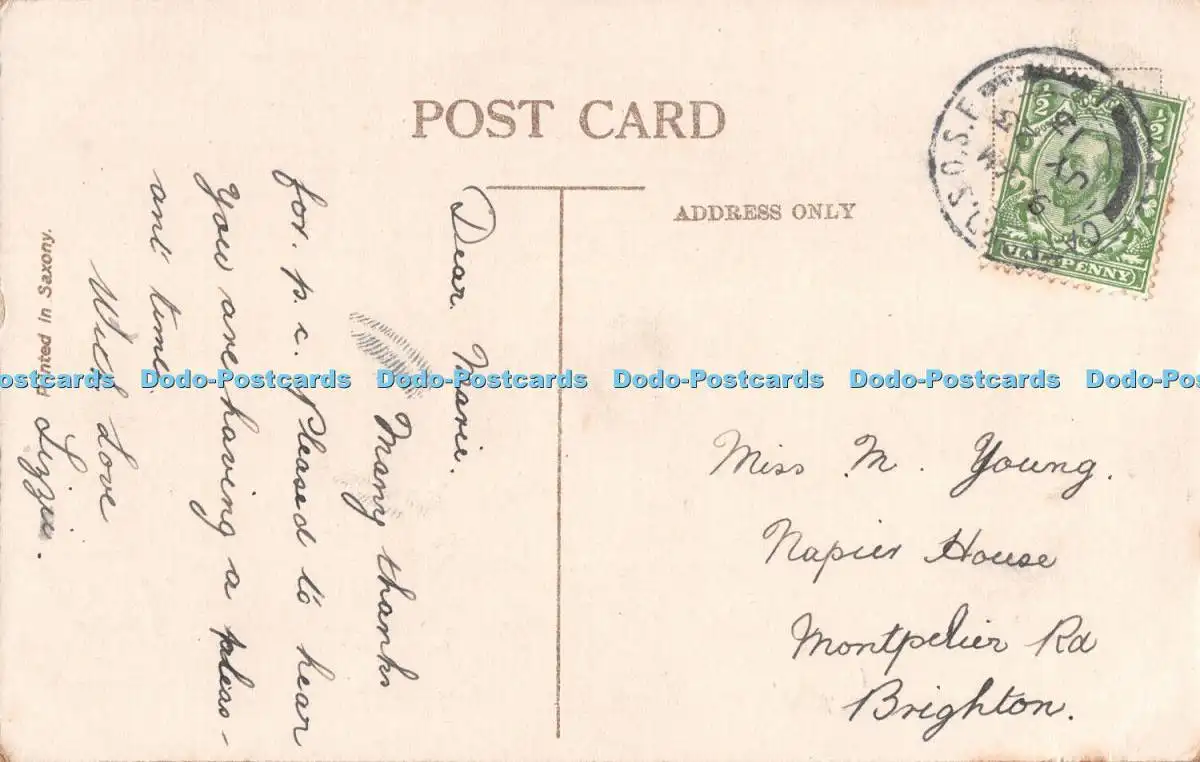 POST CARD
ADDRESS ONLY
Dear. Marie.
Many thanks
for. p. c. Pleased to hear
You are having a pleas-
ant time.
With Love
Lizzie.
Printed in Saxony.
Miss M. Young.
Napier House
Montpelier Rd
Brighton.
½ ½
PENNY
Dodo-Postcards Dodo-Postcards Dodo-Postcards Dodo-Postcards